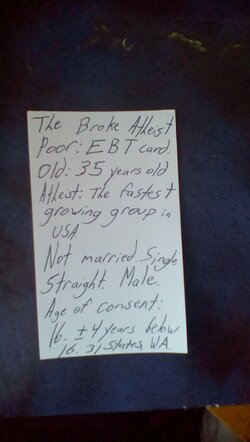 The Broke Atheist
Poor: EBT card.
Old: 35 years old
Atheist: The fastest
growing group in
USA
Not married. Single
Straight. Male.
Age of consent:
16. ± 4 years below
16. 31 states. WA.